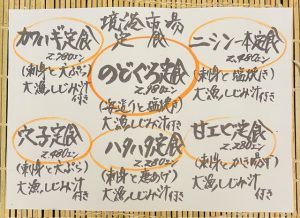 境港市場
定食
カワハギ定食
2,780エン
(刺身と天ぷら)
大漁しじみ汁付き
のどぐろ定食
2,980エン
(姿造りと塩焼き)
大漁しじみ汁付き
ニシン一本定食
2,480エン
(刺身と塩焼き)
大漁しじみ汁付き
穴子定食
2,480エン
(刺身と天ぷら)
大漁しじみ汁付き
ハタハタ定食
2,280エン
(刺身と唐あげ)
大漁しじみ汁付き
甘エビ定食
2,280エン
(刺身とかき揚げ)
大漁しじみ汁付き